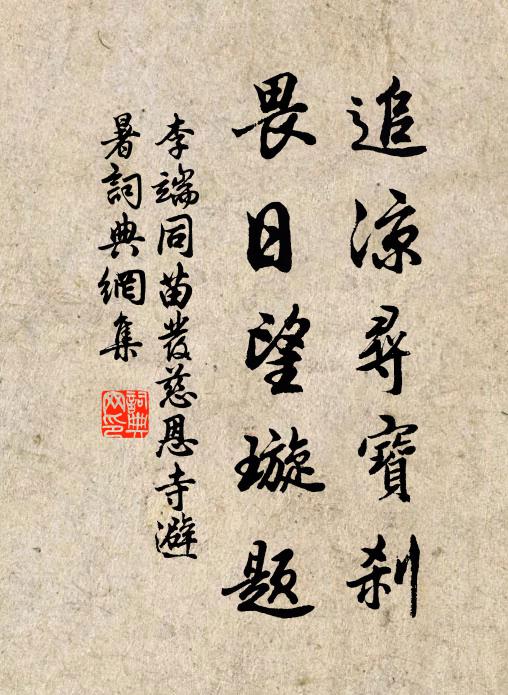 追涼尋寶刹
畏日望璇題
李端同苗發慈恩寺避
暑詞典網集
詞典
网印